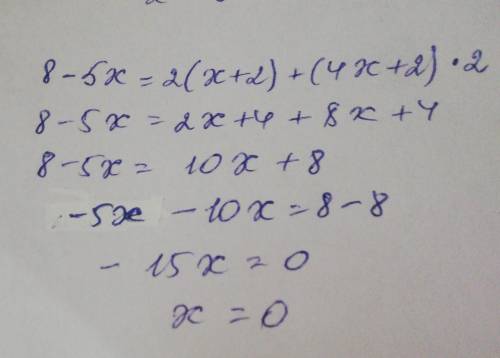 8 - 5x = 2(x+2) + (4x+2) · 2
8 - 5x = 2x+4 + 8x + 4
8 - 5x = 10x + 8
-5x - 10x = 8 - 8
- 15x = 0
x = 0